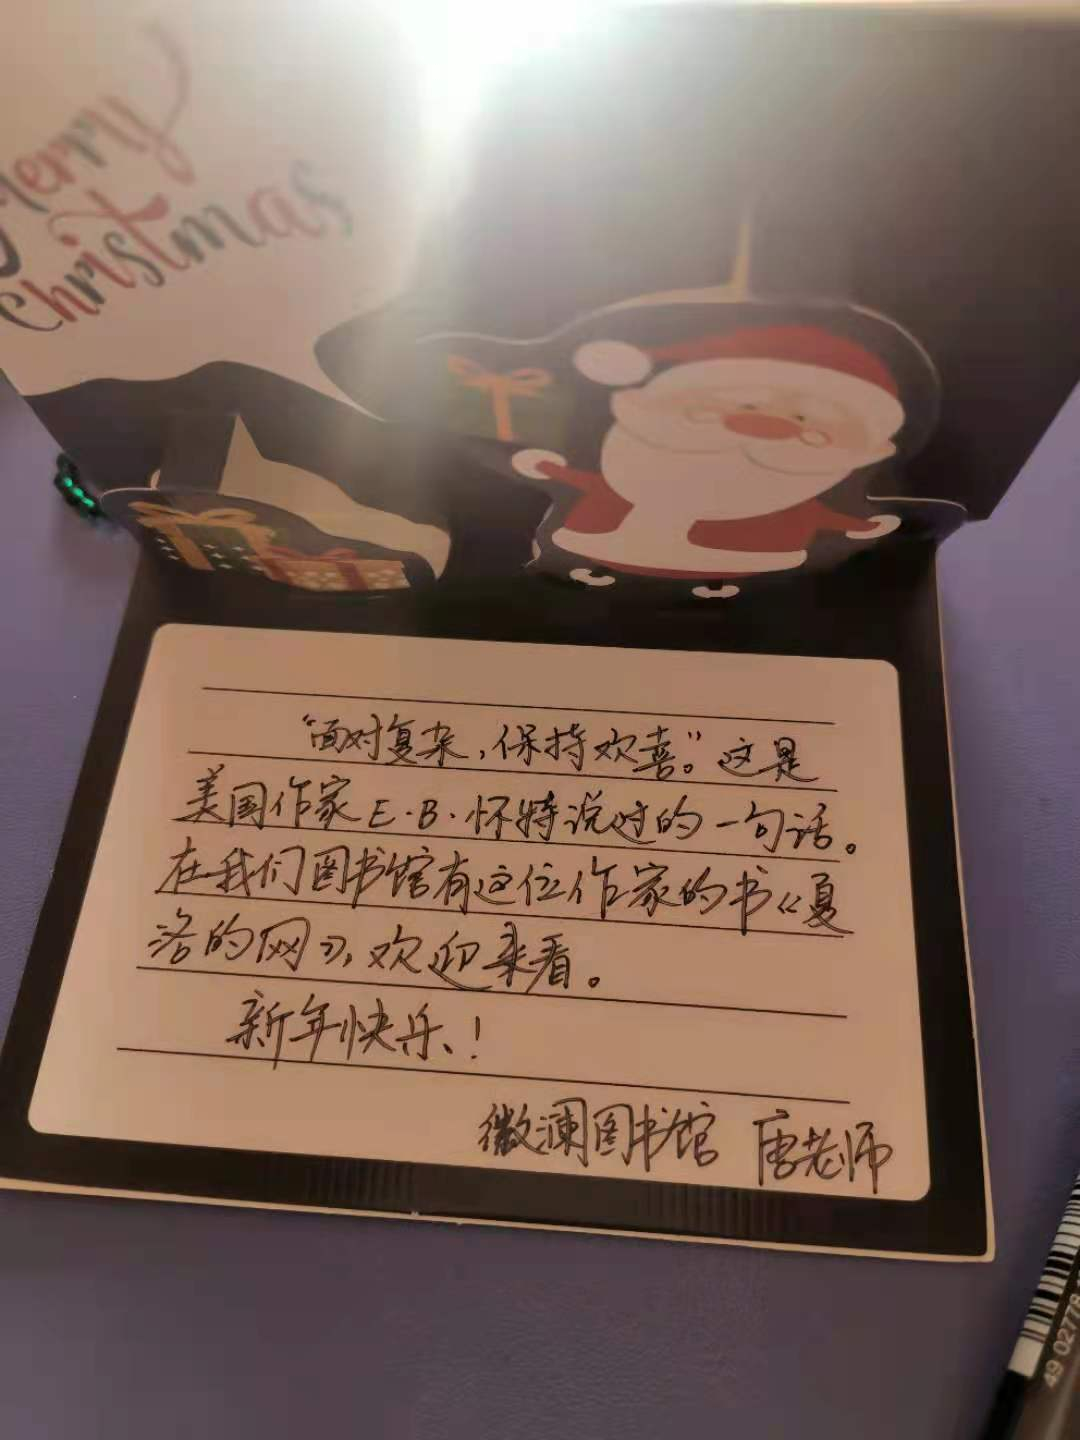 Merry
Christmas
“面对复杂，保持欢喜。”这是
美国作家E·B·怀特说过的一句话。
在我们图书馆有这位作家的书《夏
洛的网》，欢迎来看。
新年快乐！
微澜图书馆 唐老师
49 02778